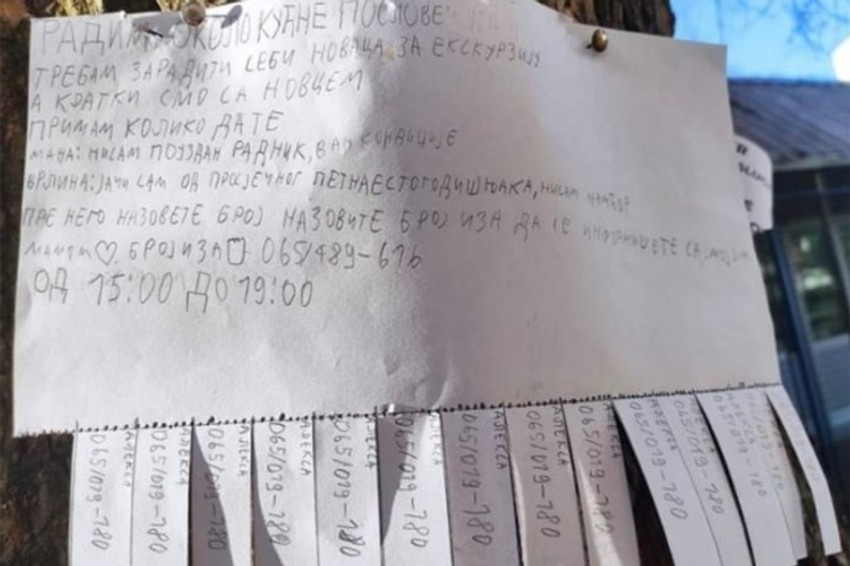 РАДИМ ОКОЛОКУЋНЕ ПОСЛОВЕ
ТРЕБАМ ЗАРАДИТИ СЕБИ НОВАЦА ЗА ЕКСКУРЗИЈУ
А КРАТКИ СМО СА НОВЦЕМ
ПРИМАМ КОЛИКО ДАТЕ
МАНА: НИСАМ ПОУЗДАН РАДНИК, ВАН КОНДИЦИЈЕ
ВРЛИНА: ЈАЧИ САМ ОД ПРОСЈЕЧНОГ ПЕТНАЕСТОГОДИШЊАКА, НИСАМ
ПРЕ НЕГО НАЗОВЕТЕ БРОЈ НАЗОВИТЕ БРОЈ ИЗА ДА СЕ ИНФОРМИШЕТЕ СА МОЈОМ
МАМОМ ♡. БРОЈ ИЗА 065/489-616
ОД 15:00 ДО 19:00
АЛЕКСА 065/019-780
АЛЕКСА 065/019-780
АЛЕКСА 065/019-780
АЛЕКСА 065/019-780
АЛЕКСА 065/019-780
АЛЕКСА 065/019-780
АЛЕКСА 065/019-780
АЛЕКСА 065/019-780
АЛЕКСА 065/019-780
АЛЕКСА 065/019-780
АЛЕКСА 065/019-780
АЛЕКСА 065/019-780